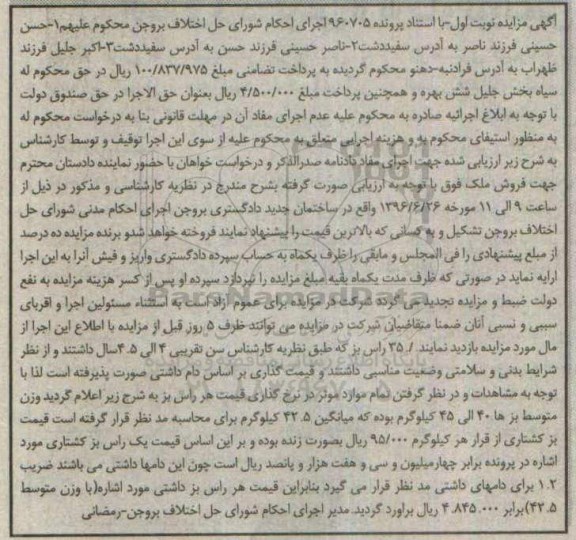 آگهی مزایده نوبت اول-با استناد پرونده ۹۶۰۷۰۵ اجرای احکام شورای حل اختلاف بروجن محکوم علیهم۱-حسن
حسینی فرزند ناصر به آدرس سفیددشت۲-ناصر حسینی فرزند حسن به آدرس سفیددشت۳-اکبر جلیل فرزند
ظهراب به آدرس فرادنبه-دهنو محکوم گردیده به پرداخت تضامنی مبلغ ۱۰۰/۸۳۷/۹۷۵ ریال در حق محکوم له
سیاه بخش جلیل شش بهره و همچنین پرداخت مبلغ ۴/۵۰۰/۰۰۰ ریال بعنوان حق الاجرا در حق صندوق دولت
با توجه به ابلاغ اجرائیه صادره به محکوم علیه عدم اجرای مفاد آن در مهلت قانونی بنا به درخواست محکوم له
به منظور استیفای محکوم به و هزینه اجرایی متعلق به محکوم علیه از سوی این اجرا توقیف و توسط کارشناس
به شرح زیر ارزیابی شده جهت اجرای مفاد دادنامه صدرالذکر و درخواست خواهان با حضور نماینده دادستان محترم
جهت فروش ملک فوق با توجه به ارزیابی صورت گرفته بشرح مندرج در نظریه کارشناسی و مذکور در ذیل از
ساعت ۹ الی ۱۱ مورخه ۱۳۹۶/۶/۲۶ واقع در ساختمان جدید دادگستری بروجن اجرای احکام مدنی شورای حل
اختلاف بروجن تشکیل و به کسانی که بالاترین قیمت را پیشنهاد نمایند فروخته خواهد شدو برنده مزایده ده درصد
از مبلغ پیشنهادی را فی المجلس و مابقی را ظرف یکماه به حساب سپرده دادگستری واریز و فیش آنرا به این اجرا
ارایه نماید در صورتی که ظرف مدت یکماه بقیه مبلغ مزایده را نپردازد سپرده او پس از کسر هزینه مزایده به نفع
دولت ضبط و مزایده تجدید می گردد شرکت در مزایده برای عموم آزاد است به استثناء مسئولین اجرا و اقربای
سببی و نسبی آنان ضمنا متقاضیان شرکت در مزایده می توانند ظرف ۵ روز قبل از مزایده با اطلاع این اجرا از
مال مورد مزایده بازدید نمایند ./ ۳۵ راس بز که طبق نظریه کارشناس سن تقریبی ۴ الی ۴.۵سال داشتند و از نظر
شرایط بدنی و سلامتی وضعیت مناسبی داشتند و قیمت گذاری بر اساس دام داشتی صورت پذیرفته است لذا با
توجه به مشاهدات و در نظر گرفتن تمام موارد موثر در نرخ گذاری قیمت هر راس بز به شرح زیر اعلام گردید وزن
متوسط بز ها ۴۰ الی ۴۵ کیلوگرم بوده که میانگین ۴۲.۵ کیلوگرم برای محاسبه مد نظر قرار گرفته است قیمت
بز کشتاری از قرار هر کیلوگرم ۹۵/۰۰۰ ریال بصورت زنده بوده و بر این اساس قیمت یک راس بز کشتاری مورد
اشاره در پرونده برابر چهارمیلیون و سی و هفت هزار و پانصد ریال است چون این دامها داشتی می باشند ضریب
۱.۲ برای دامهای داشتی مد نظر قرار می گیرد بنابراین قیمت هر راس بز داشتی مورد اشاره(با وزن متوسط
۴۲.۵)برابر ۴.۸۴۵.۰۰۰ ریال براورد گردید.مدیر اجرای احکام شورای حل اختلاف بروجن-رمضانی